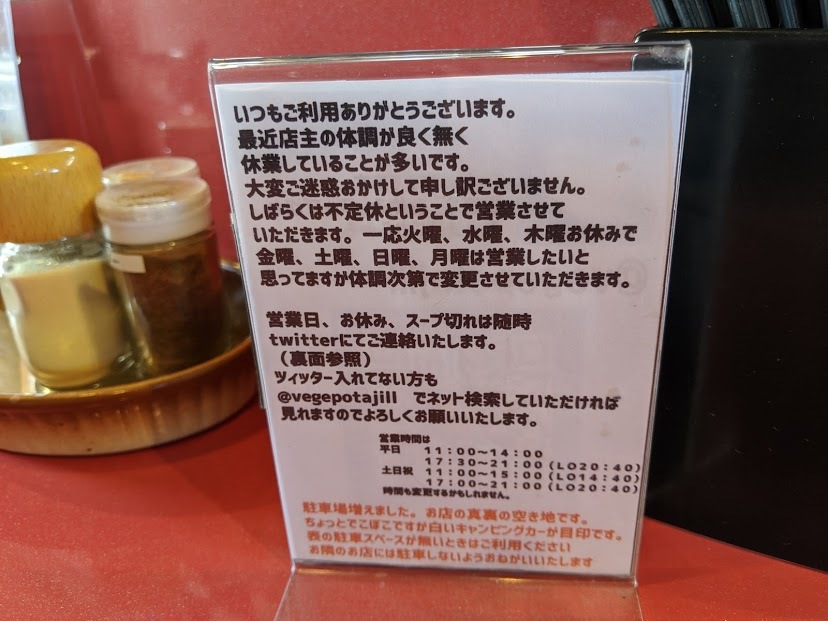 いつもご利用ありがとうございます。
最近店主の体調が良く無く
休業していることが多いです。
大変ご迷惑おかけして申し訳ございません。
しばらくは不定休ということで営業させて
いただきます。一応火曜、水曜、木曜お休みで
金曜、土曜、日曜、月曜は営業したいと
思ってますが体調次第で変更させていただきます。
営業日、お休み、スープ切れは随時
twitterにてご連絡いたします。
(裏面参照)
ツィッター入れてない方も
@vegepotajill でネット検索していただければ
見れますのでよろしくお願いいたします。
営業時間は
平日 11:00~14:00
17:30~21:00(LO20:40)
土日祝 11:00~15:00(LO14:40)
17:00~21:00(LO20:40)
時間も変更するかもしれません。
駐車場増えました。お店の真裏の空き地です。
ちょっとでこぼこですが白いキャンピングカーが目印です。
表の駐車スペースが無いときはご利用ください
お隣のお店には駐車しないようおねがいいたします